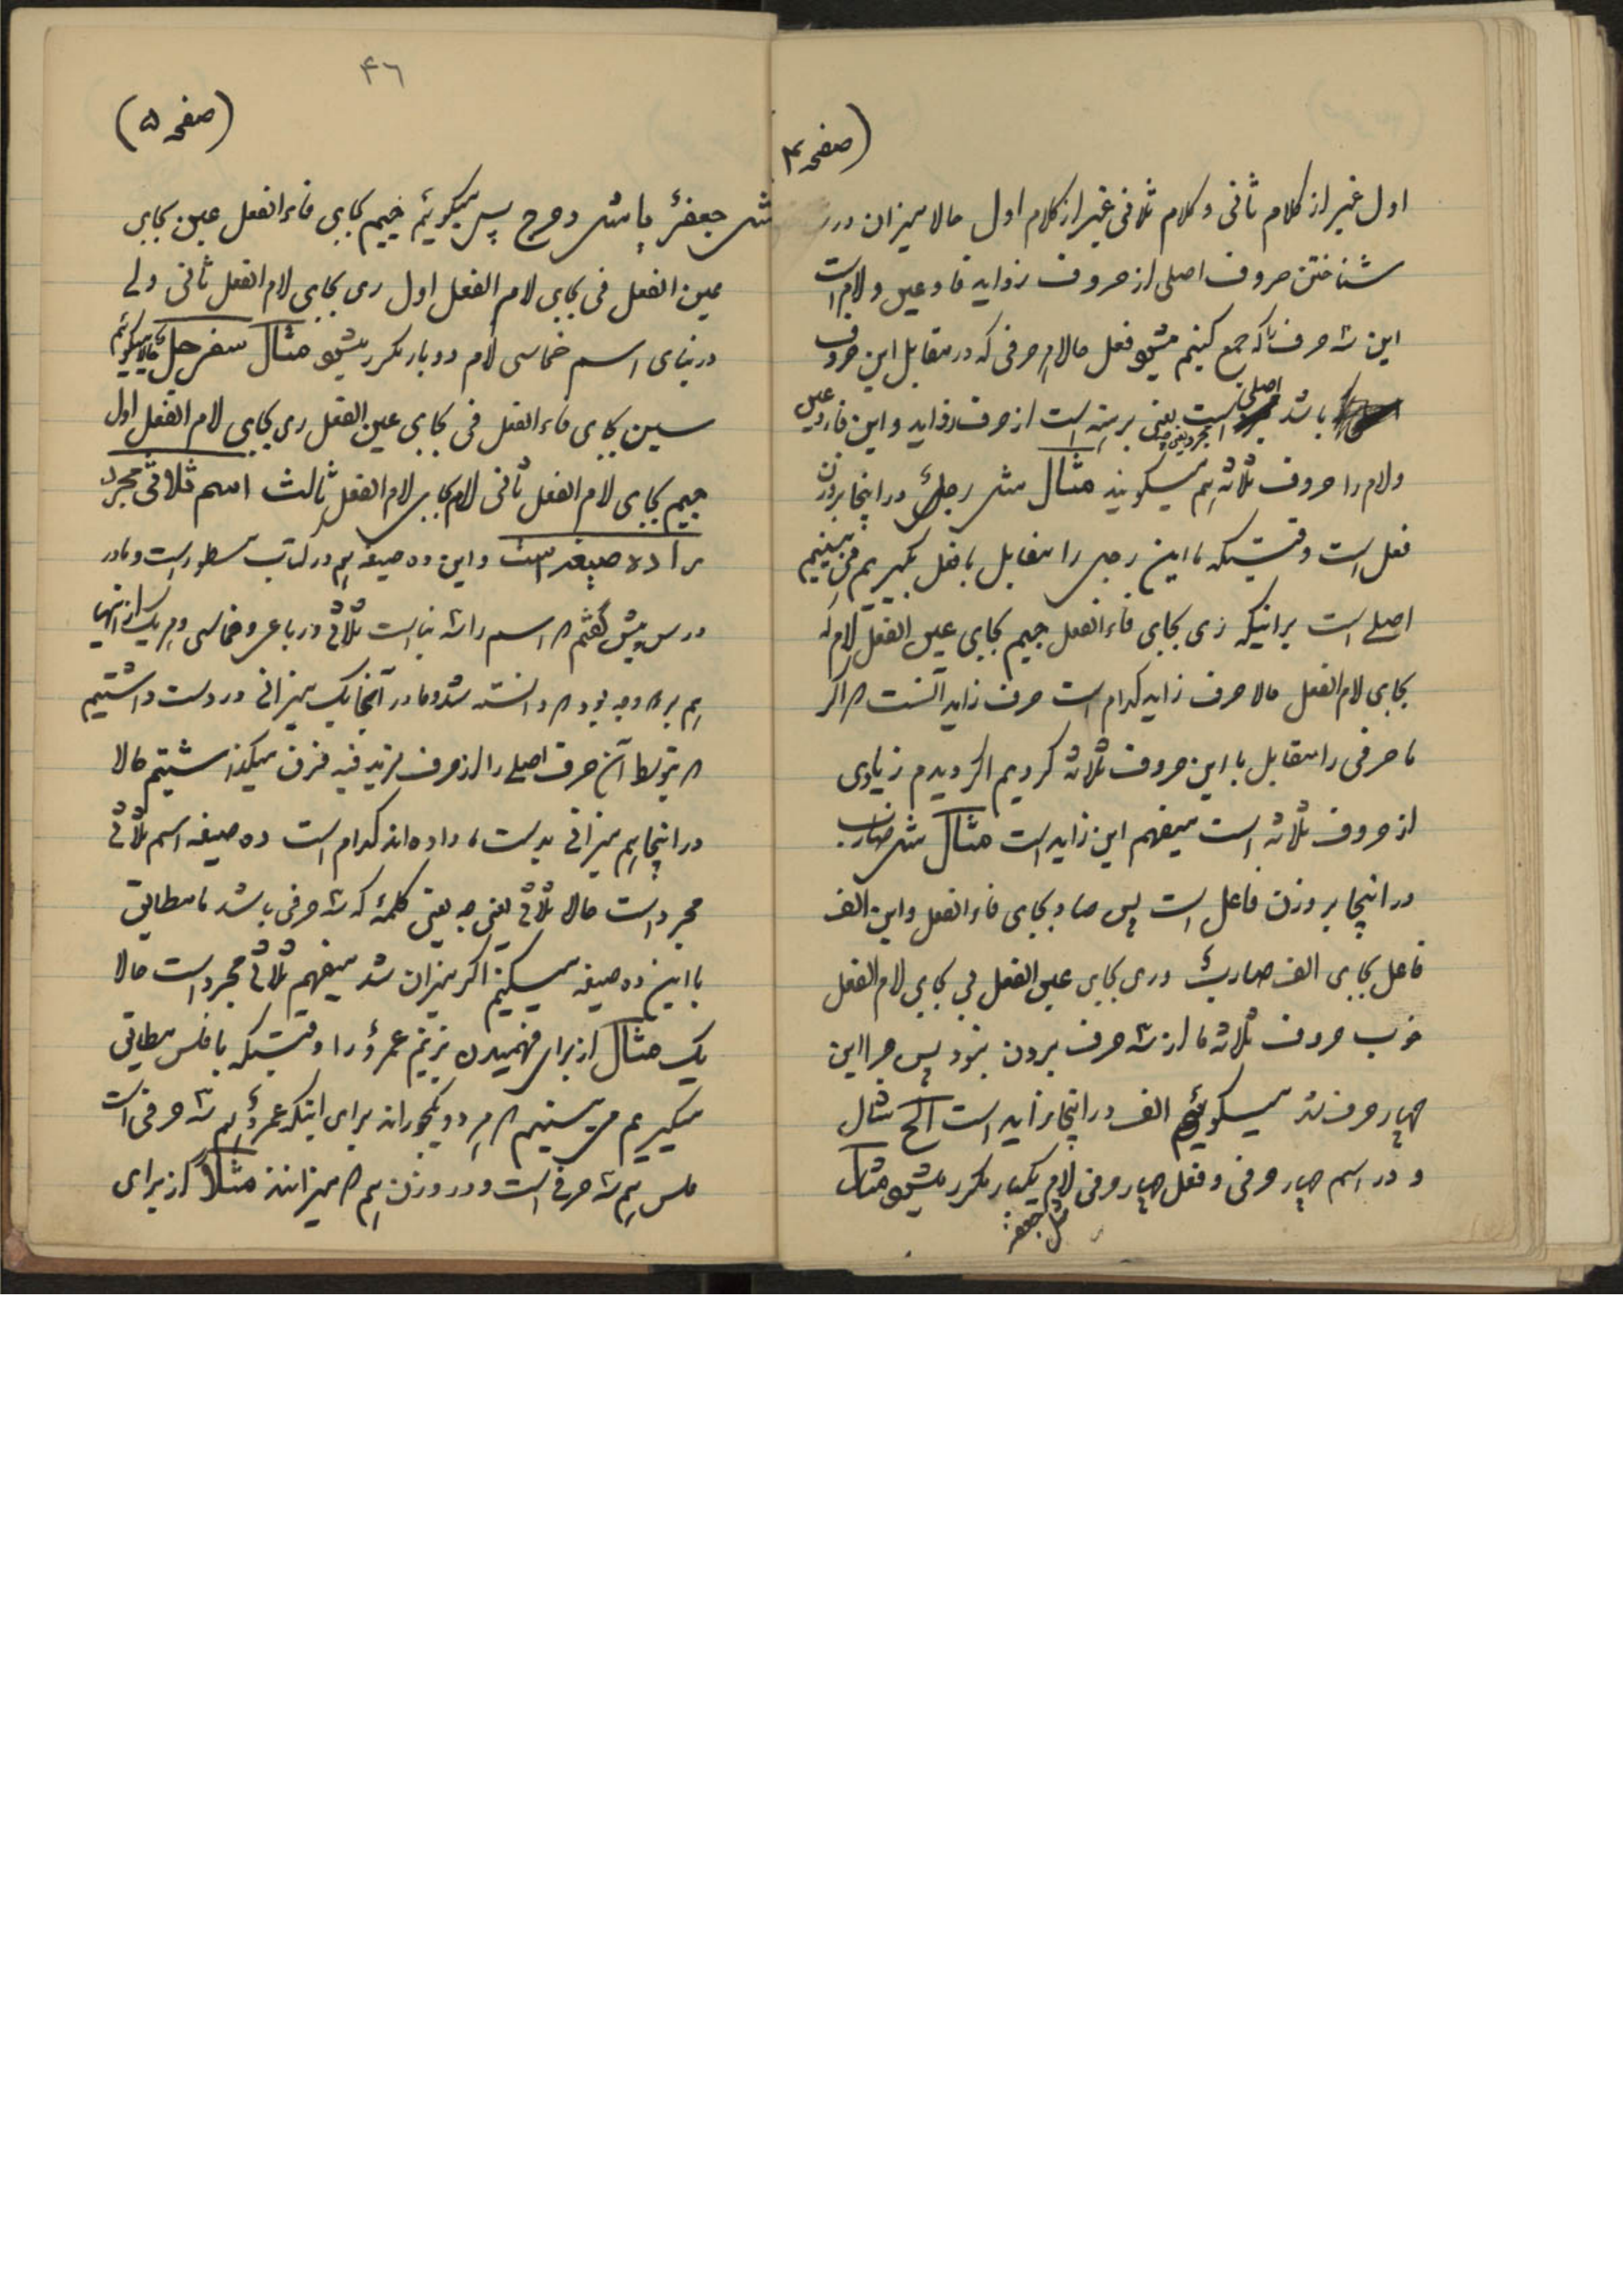 (صفحه ۴
اول غیر از کلام ثانی و کلام ثانی غیر از کلام اول حالا میزان در
شناختن حروف اصلی از حروف زواید فا و عین و لام است
این سه حرف را که جمع کنیم میشود فعل حالا هر حرفی که در مقابل این حروف
باشد اصلی است یعنی برهنه است از حرف زواید و این فا و عین
ولام را حروف ثلاثه هم میگویند مثال مثل رجلٌ در اینجا بر وزن
فعل است وقتیکه ما این رجل را مقابل با فعل بگیریم می بینیم
اصلی است برانیکه ری بجای فاء الفعل جیم بجای عین الفعل لام که
بجای لام الفعل حالا حرف زاید کدام است حرف زاید آنست که اگر
ما حرفی را مقابل با این حروف ثلاثه کردیم اگر دیدم زیادی
از حروف ثلاثه است میفهم این زاید است مثال مثل ضارب
در اینجا بر وزن فاعل است پس ضاد بجای فاء الفعل و این الف
فاعل بجای الف ضاربٌ و ری بجای عین الفعل بی بجای لام الفعل
خوب حروف ثلاثه ما از سه حرف بیرون نبود پس چرا این
چهار حرف شد میگوئیم الف در اینجا زاید است الخ مثال
و در اسم چهار حرفی و فعل چهار حرفی لام یکبار مکرر میشود مثال
مثل جعفر
۴۶
(صفحه ۵)
مثل جعفرٌ یا مثل دحرج پس میگوئیم جیم بجای فاء الفعل عین بجای
عین الفعل فی بجای لام الفعل اول ری بجای لام الفعل ثانی ولی
در بنای اسم خماسی لام دو بار مکرر میشود مثال سفرجلٌ حالا میگوئیم
سین بجای فاء الفعل فی بجای عین الفعل ری بجای لام الفعل اول
جیم بجای لام الفعل ثانی لام بجای لام الفعل ثالث اسم ثلاثی مجرد
را ده صیغه است و این ده صیغه هم در کتاب مسطور است و ما در
درس پیش گفتم که اسم را سه بنا است ثلاثی و رباعی و خماسی و هر یک از انها
هم بر دو وجه بود که دانسته شد و ما در آنجا یک میزانی در دست داشتیم
که بتوسط آن حرف اصلی را از حرف مزید فیه فرق میگذاشتیم حالا
در اینجا هم میزانی بدست ما داده اند کدام است ده صیغه اسم ثلاثی
مجرد است حالا ثلاثی یعنی چه یعنی کلمهٔ که سه حرفی باشد ما مطابق
با این ده صیغه میکنیم اگر میزان شد میفهم ثلاثی مجرد است حالا
یک مثال از برای فهمیدن بزنیم عمروٌ را وقتیکه با فلس مطابق
میگیریم می بینیم که هر دو یکجورند برای اینکه عمروٌ هم سه حرفی است
فلس هم سه حرفی است و در وزن هم که میزانند مثلاً از برای